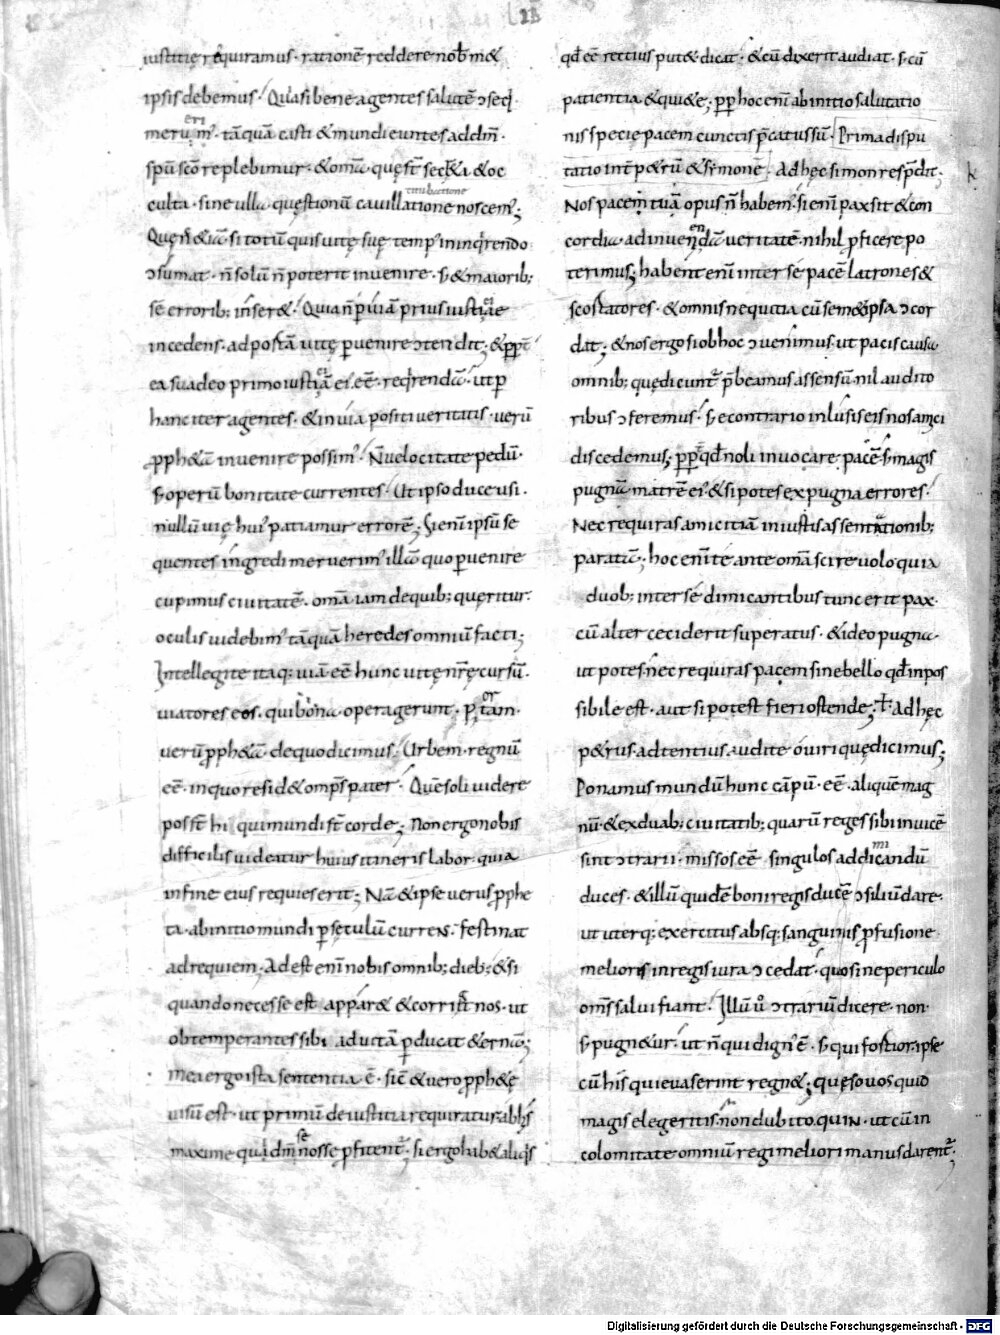 iustitię reqͥramus · rationē reddere nob̄ m&
ipsis debemus · Quasi bene agentes salutē ɔseq̄
merum̄ eri · tāquā casti & mundi euntes ad dm̄ ·
spū scō replebimur · & om̄a quę sт̄ secr&a & oc
culta · sine ulla quęstionū cauillatione titubatione noscem᷒ ;
Quę n̄ &iā si totū quis uitę suę temp᷒ in inqͥrendo
ɔsūmat · n̄ solū n̄ poterit inuenire · s; & maiorib;
sē errorib; inser& · Quia n̄ p uiā prius iustitię ei
incedens · ad portā uitę puenire ɔtendit ; & ppt̄
ea suadeo primo iustitiā ei᷒ eē · reqͥrendā · ut p
hanc iter agentes · & in uia positi ueritatis · uerū
pph&ā inuenire possim᷒ · N̄ uelocitate pedū ·
s; operū bonitate currentes · Ut ipso duce usi ·
nullū uię hui᷒ patiamur errorē ; Si enī ipsū se
quentes ingredi meruerim᷒ illā quo puenire
cupimus ciuitatē · om̄a iam de quib; quęritur ·
oculis uidebim᷒ tāquā heredes omniū facti ;
Intellegite itaq; uiā eē hunc uitę nr̄ę cursū ·
uiatores eos · qui bona opera gerunt · portam ·
uerū pph&ā de quo dicimus · Urbem · regnū
eē · in quo resid& omp̄s pater · Quē soli uidere
possт̄ hi qui mundi sт̄ corde ; Non ergo nobis
difficilis uideatur huius itineris labor · quia
in fine eius requies erit ; Nā & ipse uerus pphe
ta · ab initio mundi p sęculū currens · festinat
ad requiem · Adest enī nobis omnib; dieb; & si
quando necesse est appar& & corrigit nos · ut
obtemperantes sibi ad uitā pducat &ernā ;
mea ergo ista sententia ē · sic̄ & uero pph&ę
uisū est · ut primū de iustitia requiratur ab his
maxime qui dm̄ se nosse pfitent᷑ ; si ergo hab& aliqͥs
qd̄ eē rectius put& · dicat · & cū dixerit audiat · s; cū
patientia & qui&e ; ppt hoc enī ab initio salutatio
nis specię pacem cunctis p̄catus sū · Prima dispu
tatio int̄ p&rū & simone · Ad hęc simon respd̄it ·
Nos pacem tuā opus n̄ habem᷒ · si enī pax sit & con
cordia · ad inueniendā ueritatē · nihil pficere po
terimus ; habent enī inter sē pacē latrones &
scortatores · & omnis nequitia cū sem&ipsa ɔcor
dat ; & nos ergo si ob hoc ɔuenimus · ut pacis causa
omnib; quę dicunt᷑ p̄beamus assensū · nil audito
ribus ɔferemus · s; e contrario inlusis eis nos amici
discedemus ; ppt qd̄ noli inuocare pacē s; magis
pugnā matrē ei᷒ · & si potes expugna errores ·
Nec requiras amicitiā iniustis assentationib;
paratā ; hoc enī te ante om̄a scire uolo quia
duob; inter sē dimicantibus tunc erit pax ·
cū alter ceciderit superatus · & ideo pugna ·
ut potes · nec requiras pacem sine bello qd̄ inpos
sibile est · aut si potest fieri ostende ; Ad hęc
p&rus · adtentius audite o uiri quę dicimus ;
Ponamus mundū hunc cāpū · eē · aliquē mag
nū · & ex duab; ciuitatib; quarū reges sibi inuicē
sint ɔtrarii · missos eē singulos ad dimicandū
duces · & illū quidē boni regis ducē ɔsiliū dare ·
ut uterq; exercitus absq; sanguinis pfusione
melioris in regis iura ɔcedat · quo sine periculo
om̄s salui fiant · Illū u᷒o ɔtrariū dicere · non ·
s; pugn&ur · ut n̄ qui dign᷒ ē · s; qui fortior · ipse
cū his qui euaserint regn& ; quęso uos quid
magis elegeritis · non dubito quin · ut cū in
colomitate omniū regi meliori manus darent᷑ ;
Digitalisierung gefördert durch die Deutsche Forschungsgemeinschaft - DFG